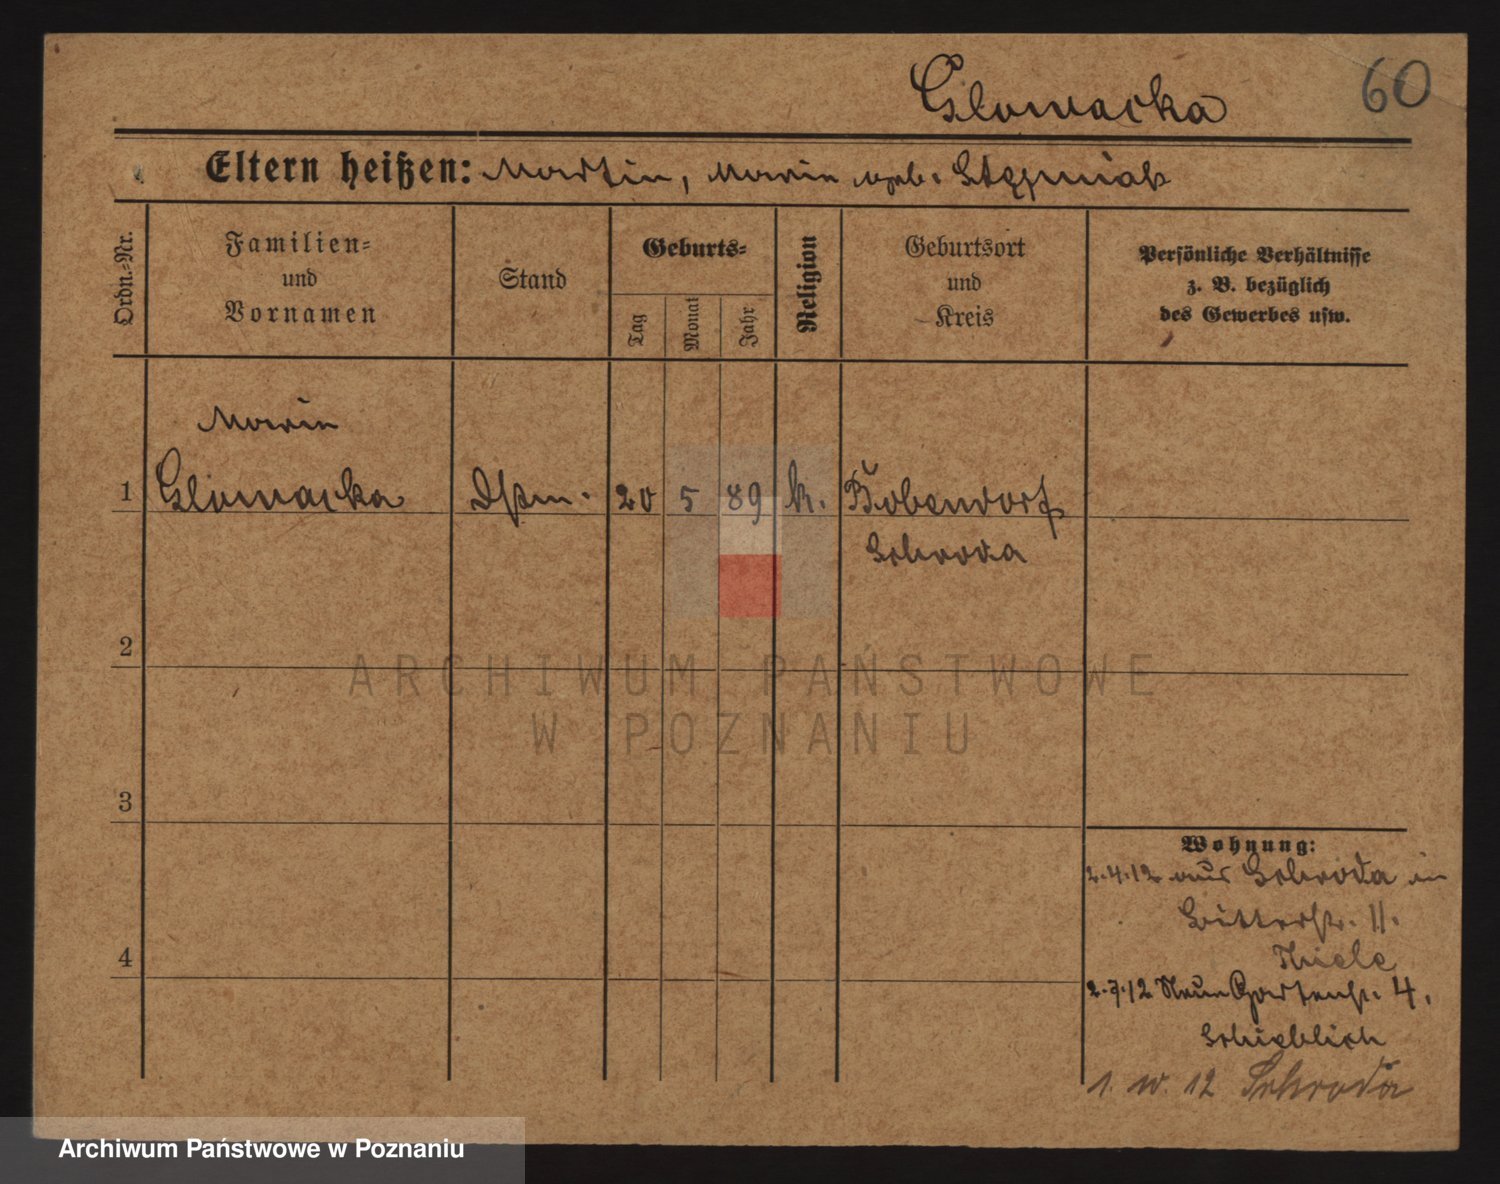 Glowacka
60
Eltern heißen: Martin, Marie geb. Stępniak
Ordn.-Nr.
Familien-
und
Vornamen
Stand
Geburts-
Tag
Monat
Jahr
Religion
Geburtsort
und
Kreis
Persönliche Verhältnisse
z. B. bezüglich
des Gewerbes usw.
Marie
1 Glowacka Dstm. 20 5 89 k. Bobendorf
Schroda
2
3
4
Wohnung:
2.4.12 aus Schroda in
Ritterstr. 11.
Thiele
2.7.12 Neue Gartenstr. 4.
Schieblich
1. 10. 12 Schroda
ARCHIWUM PAŃSTWOWE
W POZNANIU
Archiwum Państwowe w Poznaniu